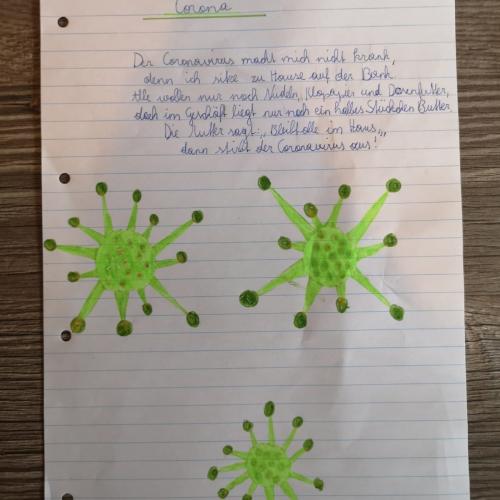 Corona
Der Coronavirus macht mich nicht krank,
denn ich sitze zu Hause auf der Bank.
Alle wollen nur noch Nudeln, Klopapier und Dosenfutter,
doch im Geschäft liegt nur noch ein halbes Stückchen Butter.
Die Mutter sagt: „Bleibt alle im Haus,„
dann stirbt der Coronavirus aus!